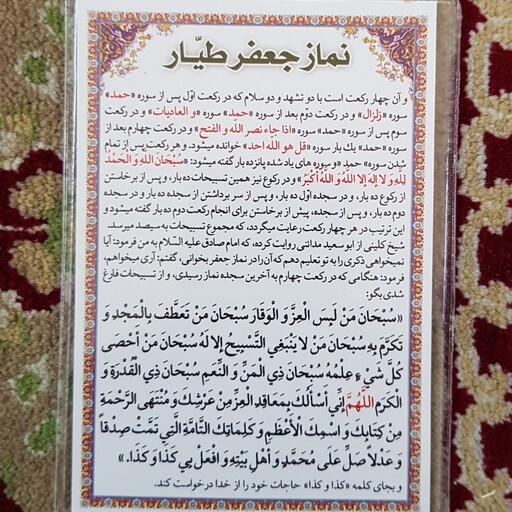 نماز جعفر طیّار
و آن چهار رکعت است با دو تشهد و دو سلام که در رکعت اوّل پس از سوره «حمد»
سوره «زلزال» و در رکعت دوّم بعد از سوره «حمد» سوره «و العادیات» و در رکعت
سوم پس از سوره «حمد» سوره «اذا جاء نصر الله و الفتح» و در رکعت چهارم بعد از
سوره «حمد» یك بار سوره «قل هو الله احد» خوانده میشود. و هر رکعت پس از تمام
شدن سوره» حمد «و سوره های یاد شده پانزده بار گفته میشود: «سُبْحَانَ اللهِ وَ الْحَمْدُ
لِلّٰهِ وَ لا إِلٰهَ إِلا اللهُ وَ اللهُ أَكْبَرُ» و در رکوع نیز همین تسبیحات ده بار، و پس از برخاستن
از رکوع ده بار، و در سجده اوّل ده بار، و پس از سر برداشتن از سجده ده بار، و در سجده
دوم ده بار، و پس از سجده، پیش از برخاستن برای انجام رکعت دوم ده بار گفته میشود و
این ترتیب در هر چهار رکعت رعایت میگردد، که مجموع تسبیحات به سیصد میرسد.
شیخ کلینی از ابو سعید مدائنی روایت کرده، که امام صادق علیه السّلام به من فرمود: آیا
نمیخواهی ذکری را به تو تعلیم دهم که آن را در نماز جعفر بخوانی، گفتم: آری میخواهم،
فرمود: هنگامی که در رکعت چهارم به آخرین سجده نماز رسیدی، و از تسبیحات فارغ
شدی بگو:
«سُبْحَانَ مَنْ لَبِسَ الْعِزَّ وَ الْوَقَارَ سُبْحَانَ مَنْ تَعَطَّفَ بِالْمَجْدِ وَ
تَكَرَّمَ بِهِ سُبْحَانَ مَنْ لا يَنْبَغِي التَّسْبِيحُ إِلا لَهُ سُبْحَانَ مَنْ أَحْصَى
كُلَّ شَيْءٍ عِلْمُهُ سُبْحَانَ ذِي الْمَنِّ وَ النِّعَمِ سُبْحَانَ ذِي الْقُدْرَةِ وَ
الْكَرَمِ اللَّهُمَّ إِنِّي أَسْأَلُكَ بِمَعَاقِدِ الْعِزِّ مِنْ عَرْشِكَ وَ مُنْتَهَى الرَّحْمَةِ
مِنْ كِتَابِكَ وَ اسْمِكَ الْأَعْظَمِ وَ كَلِمَاتِكَ التَّامَّةِ الَّتِي تَمَّتْ صِدْقاً
وَ عَدْلاً صَلِّ عَلَى مُحَمَّدٍ وَ أَهْلِ بَيْتِهِ وَ افْعَلْ بِي كَذَا وَ كَذَا.»
و بجای کلمه «کذا و کذا» حاجات خود را از خدا درخواست کند.